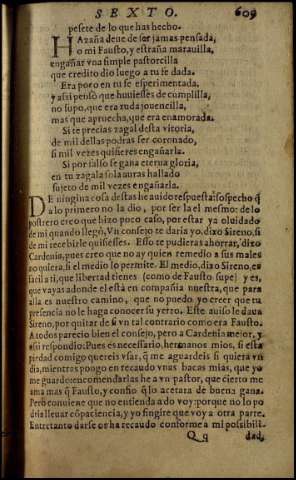 SEXTO. 609
pesete de lo que has hecho.
HAzaña deue de ser jamas pensada,
o mi Fausto, y estraña marauilla,
engañar vna simple pastorcilla
que credito dio luego a tu fe dada.
Era poco en tu fe esperimentada,
y assi pensò que huuiesses de cumplilla,
no supo, que era ruda jouencilla,
mas que aprouecha, que era enamorada.
Si te precias zagal desta vitoria,
de mil dellas podras ser coronado,
si mil vezes quisieres engañarla.
Si por falso se gana eterna gloria,
en tu zagala solauras hallado
sujeto de mil vezes engañarla.
DE ninguna cosa destas he auido respuesta: sospecho q̃
a lo primero no la dio, por ser la el mesmo: de lo
postrero creo que hizo poco caso, por estar ya oluidado
de mi quando llegò, Vn consejo te daria yo, dixo Sireno, si
de mi recebirle quisiesses. Esso te pudieras ahorrar, dixo
Cardenia, pues creo que no ay quien remedio a sus males
no quiera, si el medio lo permite. El medio, dixo Sireno, es
facil a ti, que libertad tienes (como de Fausto supe) y es,
que vayas adonde el està en compañia nuestra, que para
alla es nuestro camino, que no puedo yo creer que tu
presencia no le haga conocer su yerro. Este auiso le daua
Sireno, por quitar de si vn tal contrario como era Fausto.
A todos parecio bien el consejo, pero a Cardenia mejor, y
assi respondio: Pues es necessario, hermanos mios, si esta
piedad comigo quereis vsar, q̃ me aguardeis si quiera vn
dia, mientras pongo en recaudo vnas bacas mias, que yo
me guardo: encomendarlas he a vn pastor, que cierto me
ama mas q̃ Fausto, y confio q̃ lo acetara de buena gana.
Pero conuiene que no entienda a do voy: porque no lo po
dria lleuar cõ paciencia, y yo fingire que voy a otra parte.
Entretanto darse or ha recaudo conforme a mi possibili-
Qq dad,